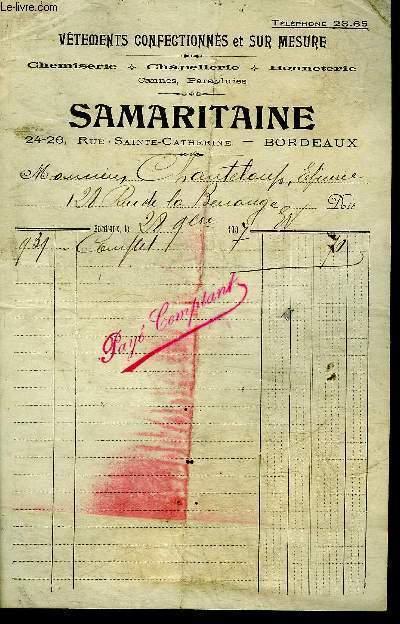 Livre-rare-book
TÉLÉPHONE 23.65
VÊTEMENTS CONFECTIONNÉS et SUR MESURE
Chemiserie Chapellerie Bonneterie
Cannes, Parapluies
SAMARITAINE
24-26, RUE SAINTE-CATHERINE — BORDEAUX
Monsieur Chanteloup, Etienne
128 Rue de la Benauge Doit
Bordeaux, le 28 9bre 1907
939 Complet 70
Payé Comptant